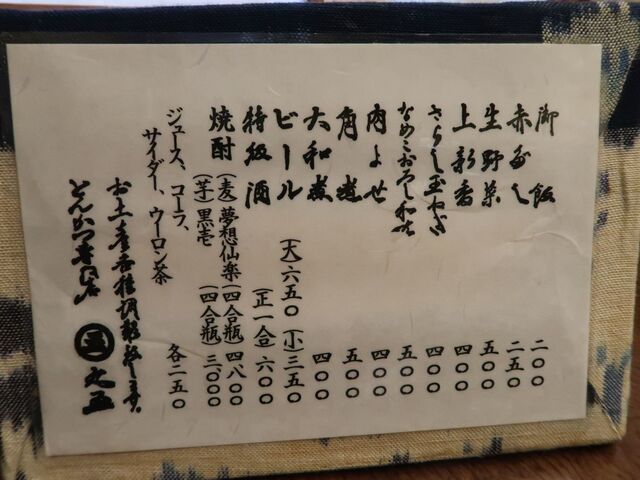 御飯 二〇〇
赤だし 二五〇
生野菜 五〇〇
上新香 四〇〇
さらし玉ねぎ 四〇〇
なめこおろし和え 五〇〇
肉よせ 四〇〇
角煮 五〇〇
大和煮 四〇〇
ビール (大)六五〇 (小)三五〇
特級酒 (正一合)六〇〇
焼酎 (麦)夢想仙楽(四合瓶)四八〇〇
(芋)黒壱(四合瓶)三〇〇〇
ジュース、コーラ、
サイダー、ウーロン茶 各二五〇
お土産各種調製致します。
とんかつ専門店 丸五